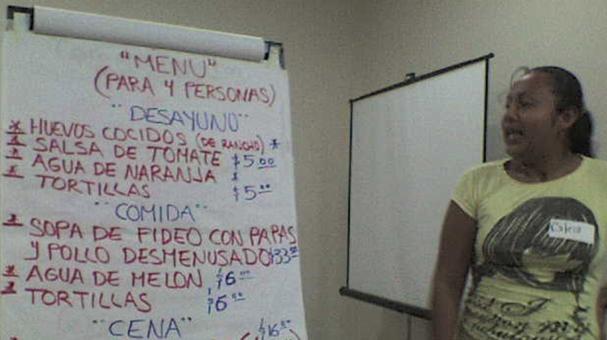 "MENU"
(PARA 4 PERSONAS)
"DESAYUNO"
* HUEVOS COCIDOS (DE RANCHO) *
* SALSA DE TOMATE $5.00
* AGUA DE NARANJA *
* TORTILLAS $5.00
"COMIDA"
* SOPA DE FIDEO CON PAPAS
Y POLLO DESMENUSADO $33.00
* AGUA DE MELON, $6.00
* TORTILLAS $6.00
"CENA"